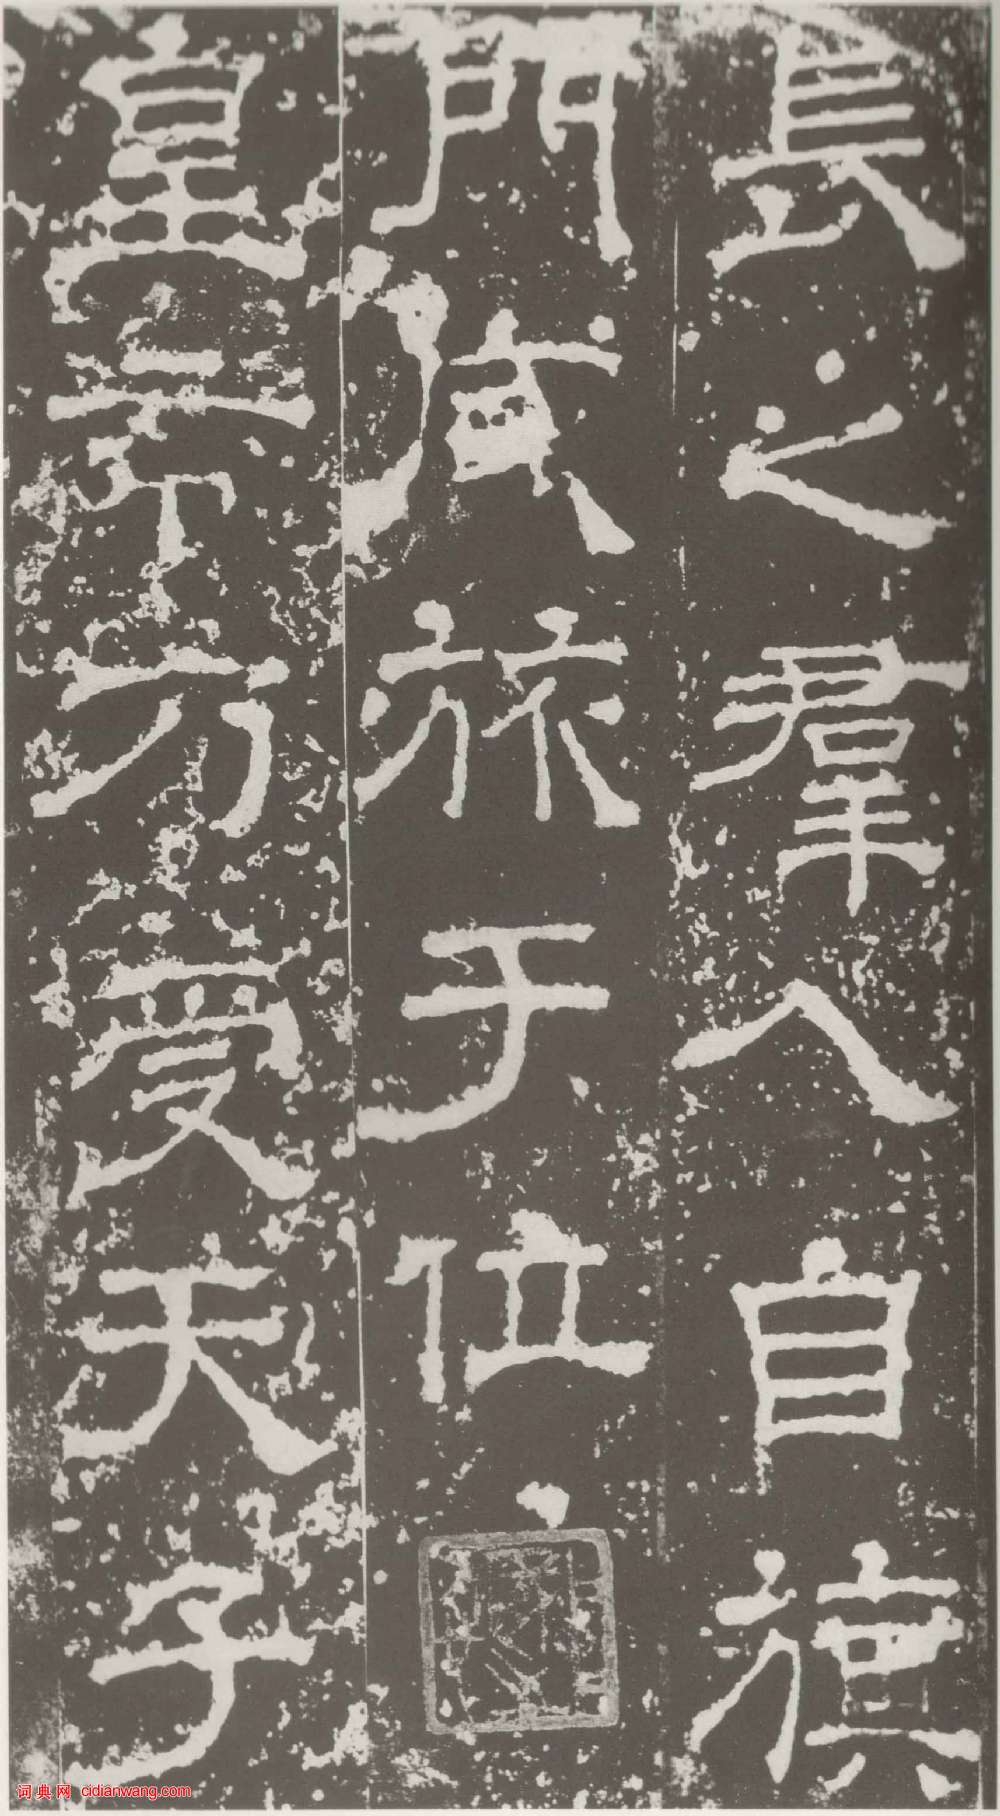 長之羣入自旗
門咸旅于位
皇帝乃受天子
词典网 cidianwang.com